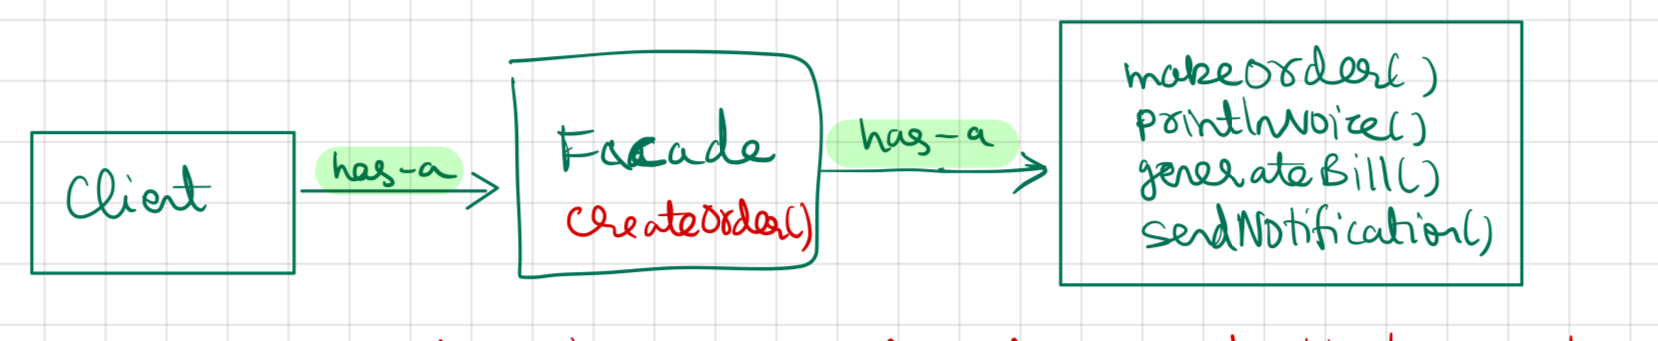 Client
has-a
Facade
createOrder()
has-a
makeOrder()
printInvoice()
generateBill()
sendNotification()